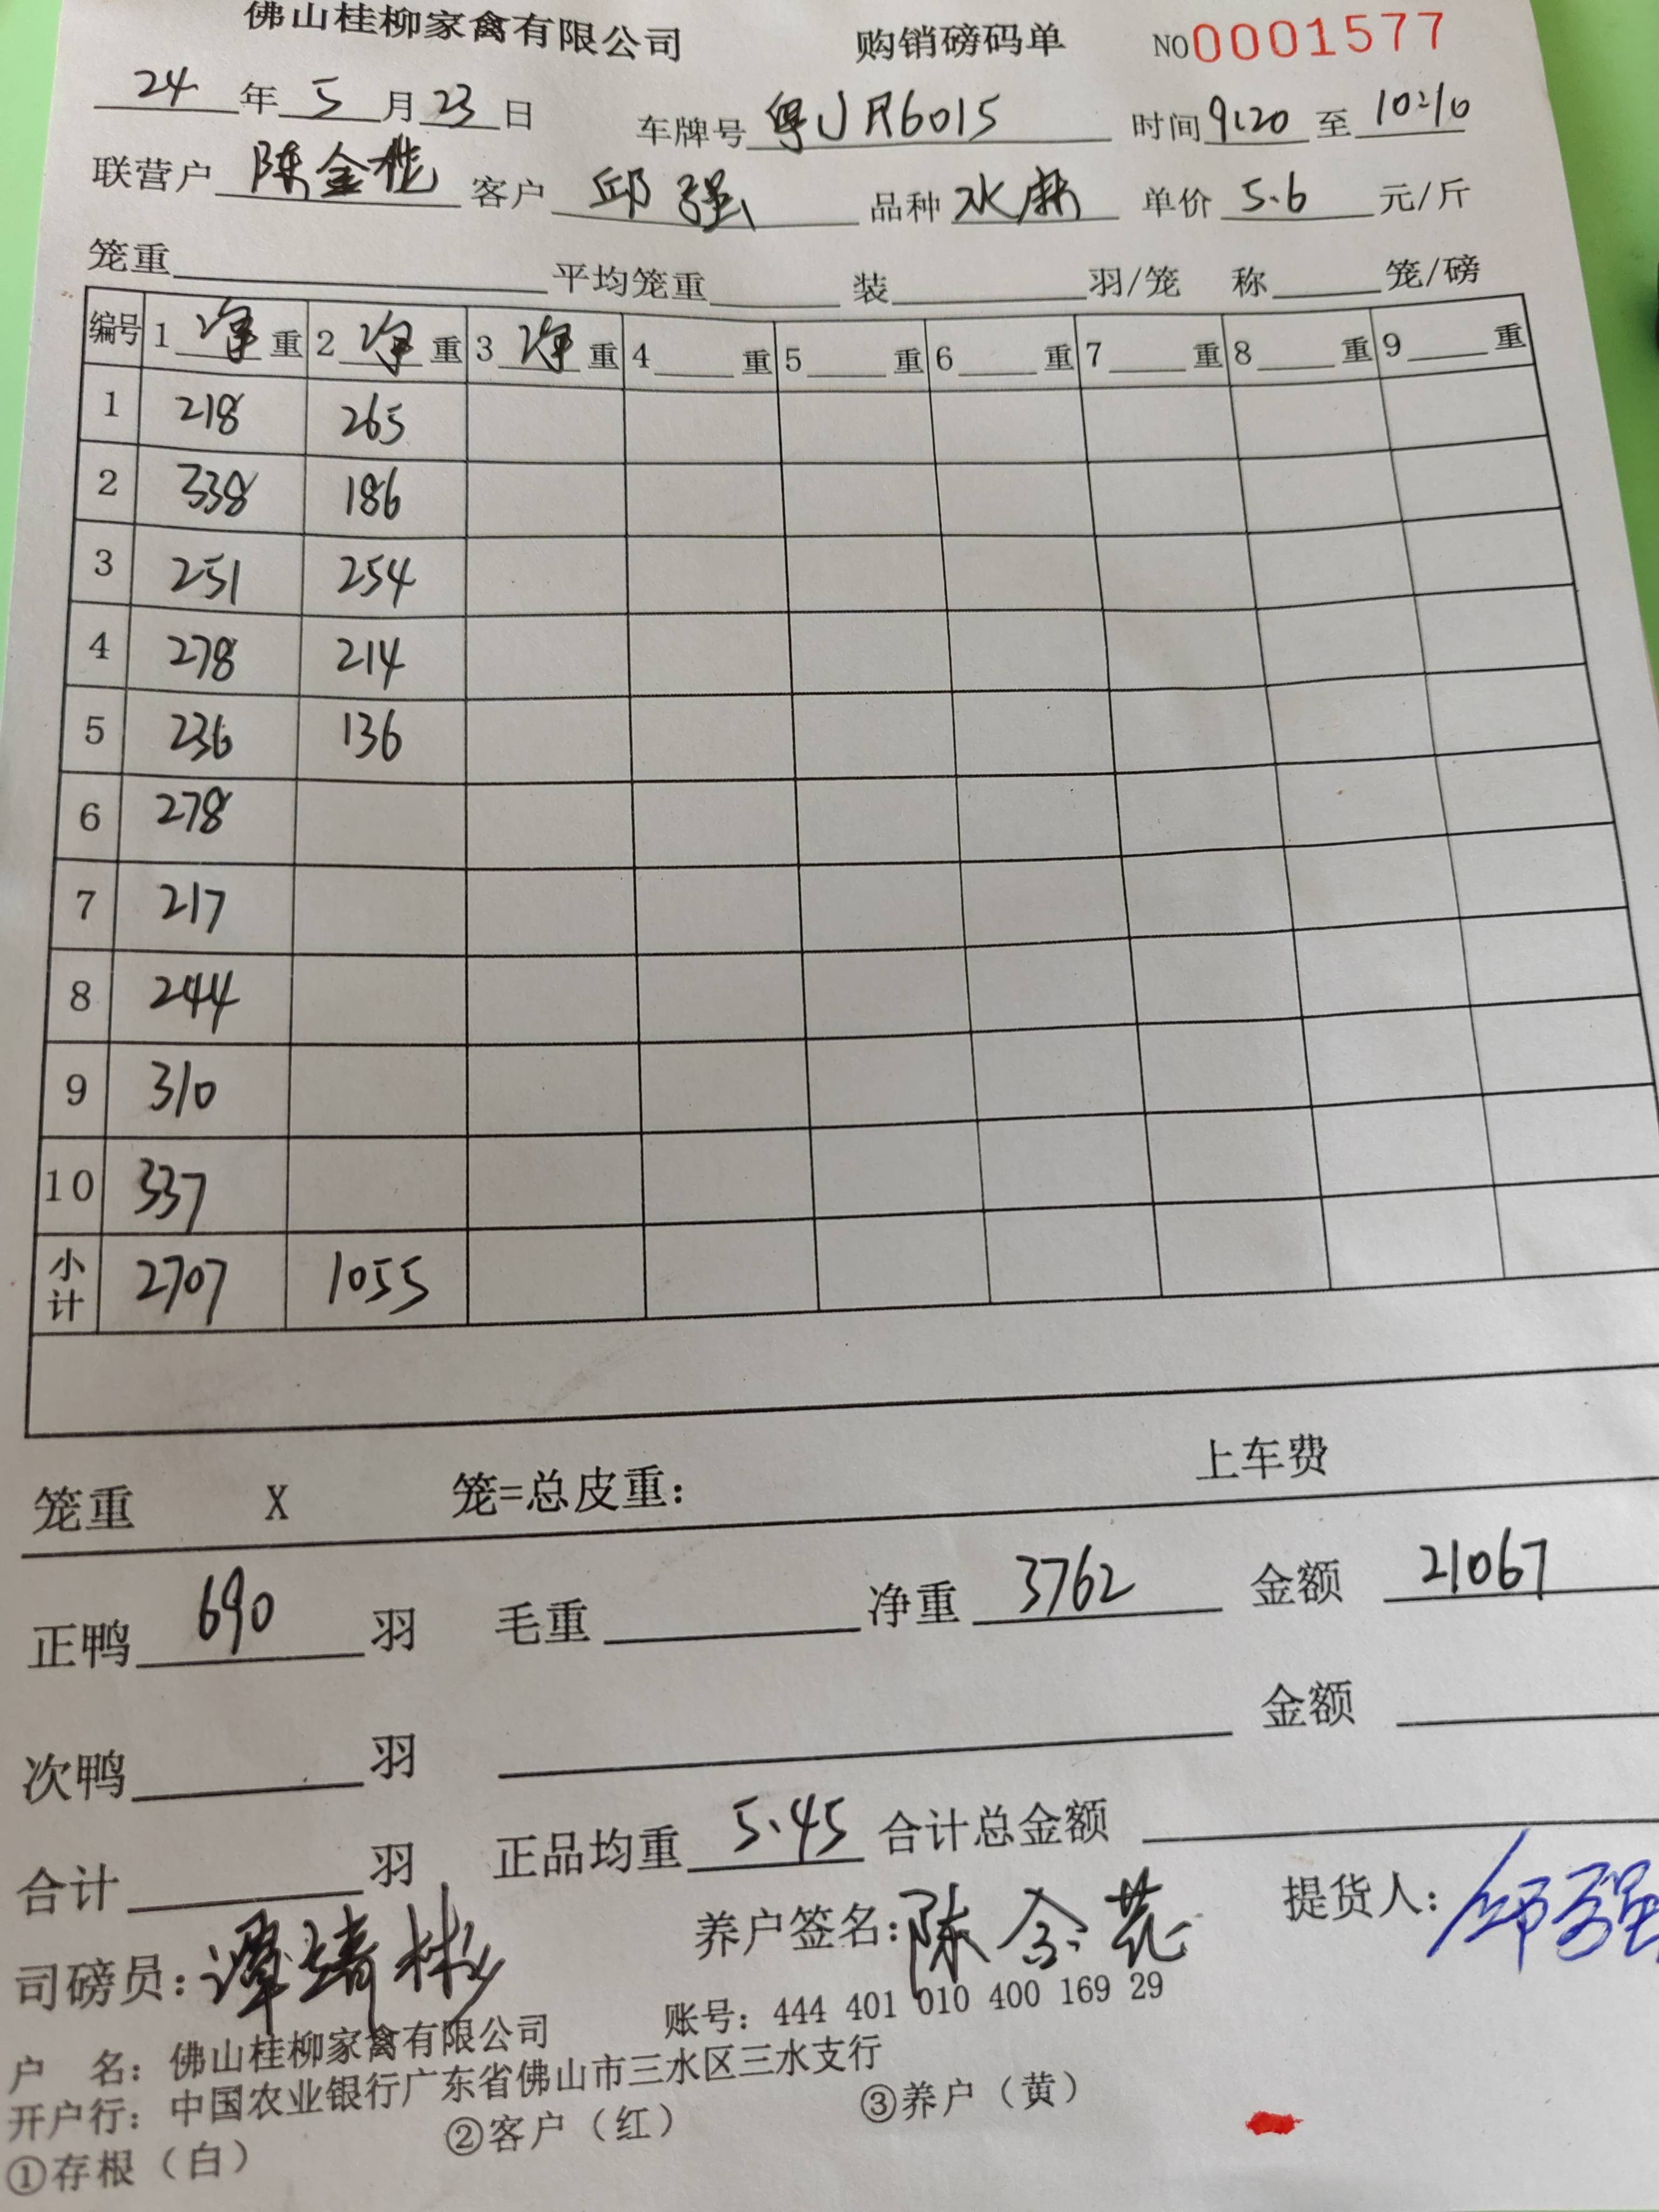 佛山桂柳家禽有限公司 购销磅码单 NO0001577
24年5月23日 车牌号 粤JR6015 时间9:20至10:10
联营户 陈金花 客户 邱强 品种 水麻 单价 5.6 元/斤
笼重 平均笼重 装 羽/笼 称 笼/磅
编号 1 净 重 2 净 重 3 净 重 4 重 5 重 6 重 7 重 8 重 9 重
1 218 265
2 338 186
3 251 254
4 278 214
5 236 136
6 278
7 217
8 244
9 310
10 337
小计 2707 1055
笼重 X 笼=总皮重: 上车费
正鸭 690 羽 毛重 净重 3762 金额 21067
次鸭 羽 金额
合计 羽 正品均重 5.45 合计总金额
司磅员: 谭琦彬 养户签名: 陈金花 提货人: 邱强
户 名: 佛山桂柳家禽有限公司 账号: 444 401 010 400 169 29
开户行: 中国农业银行广东省佛山市三水区三水支行
①存根（白） ②客户（红） ③养户（黄）